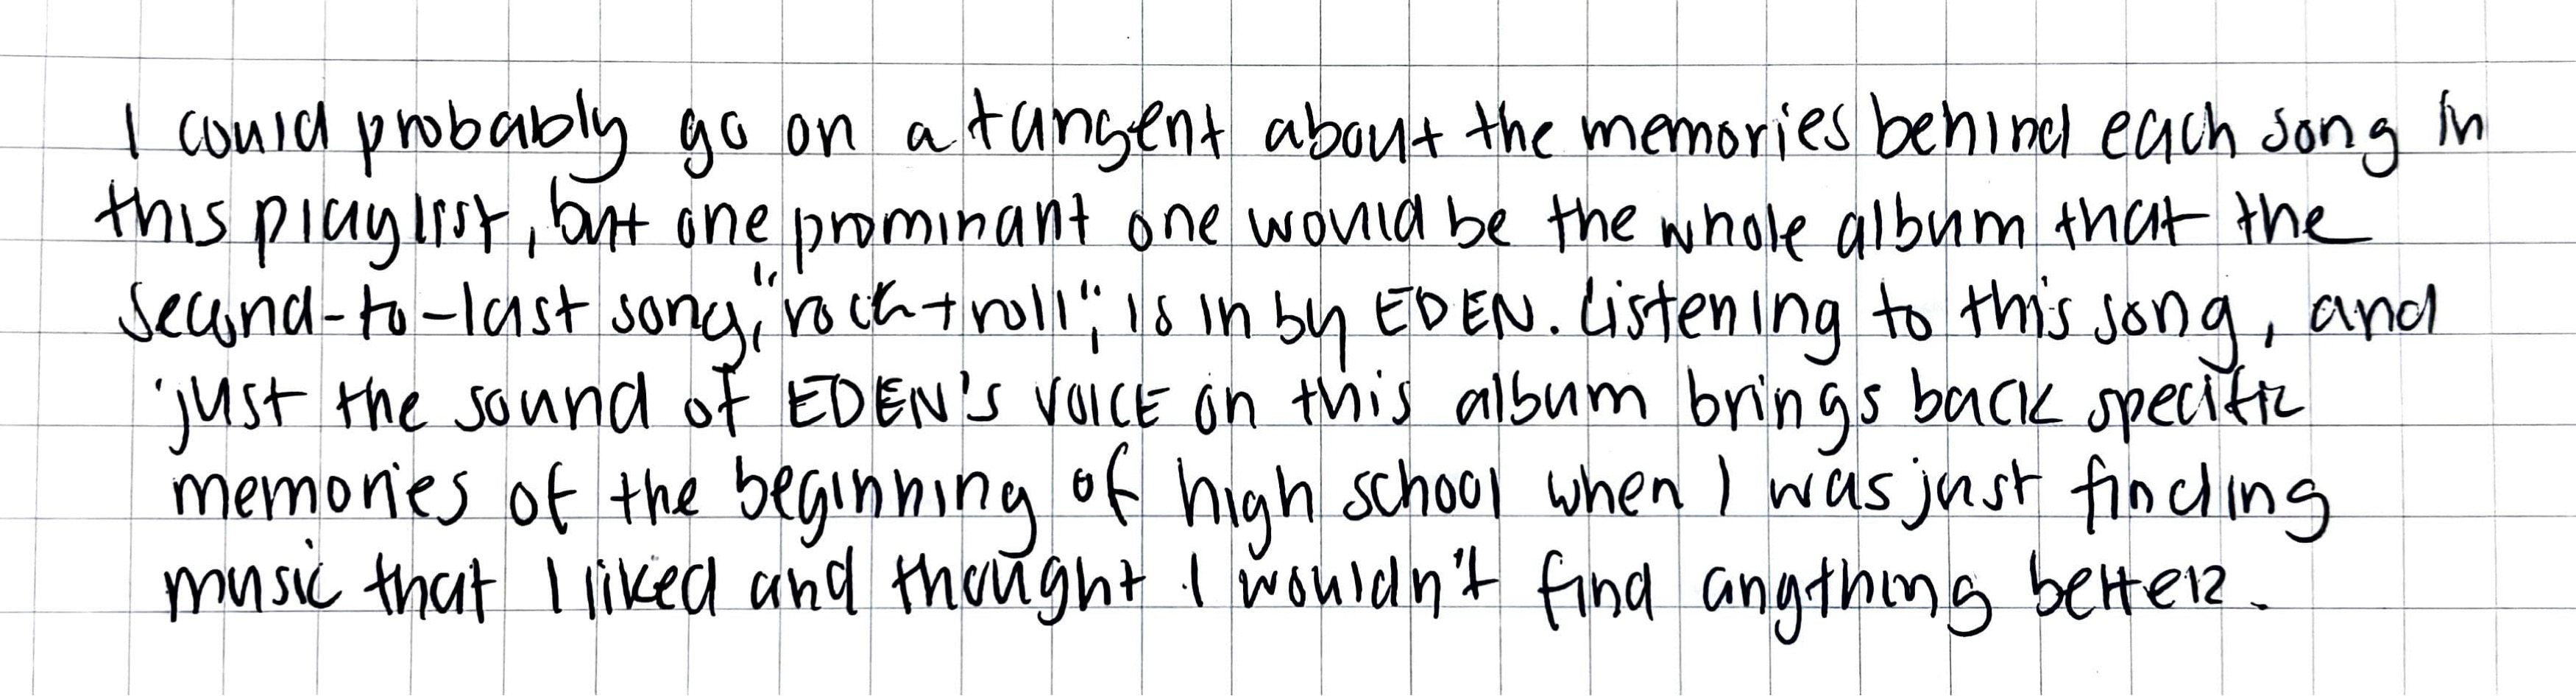 I could probably go on a tangent about the memories behind each song in
this playlist, but one prominant one would be the whole album that the
second-to-last song, "rock + roll", is in by EDEN. Listening to this song, and
just the sound of EDEN's voice on this album brings back specific
memories of the beginning of high school when I was just finding
music that I liked and thought I wouldn't find angything better.